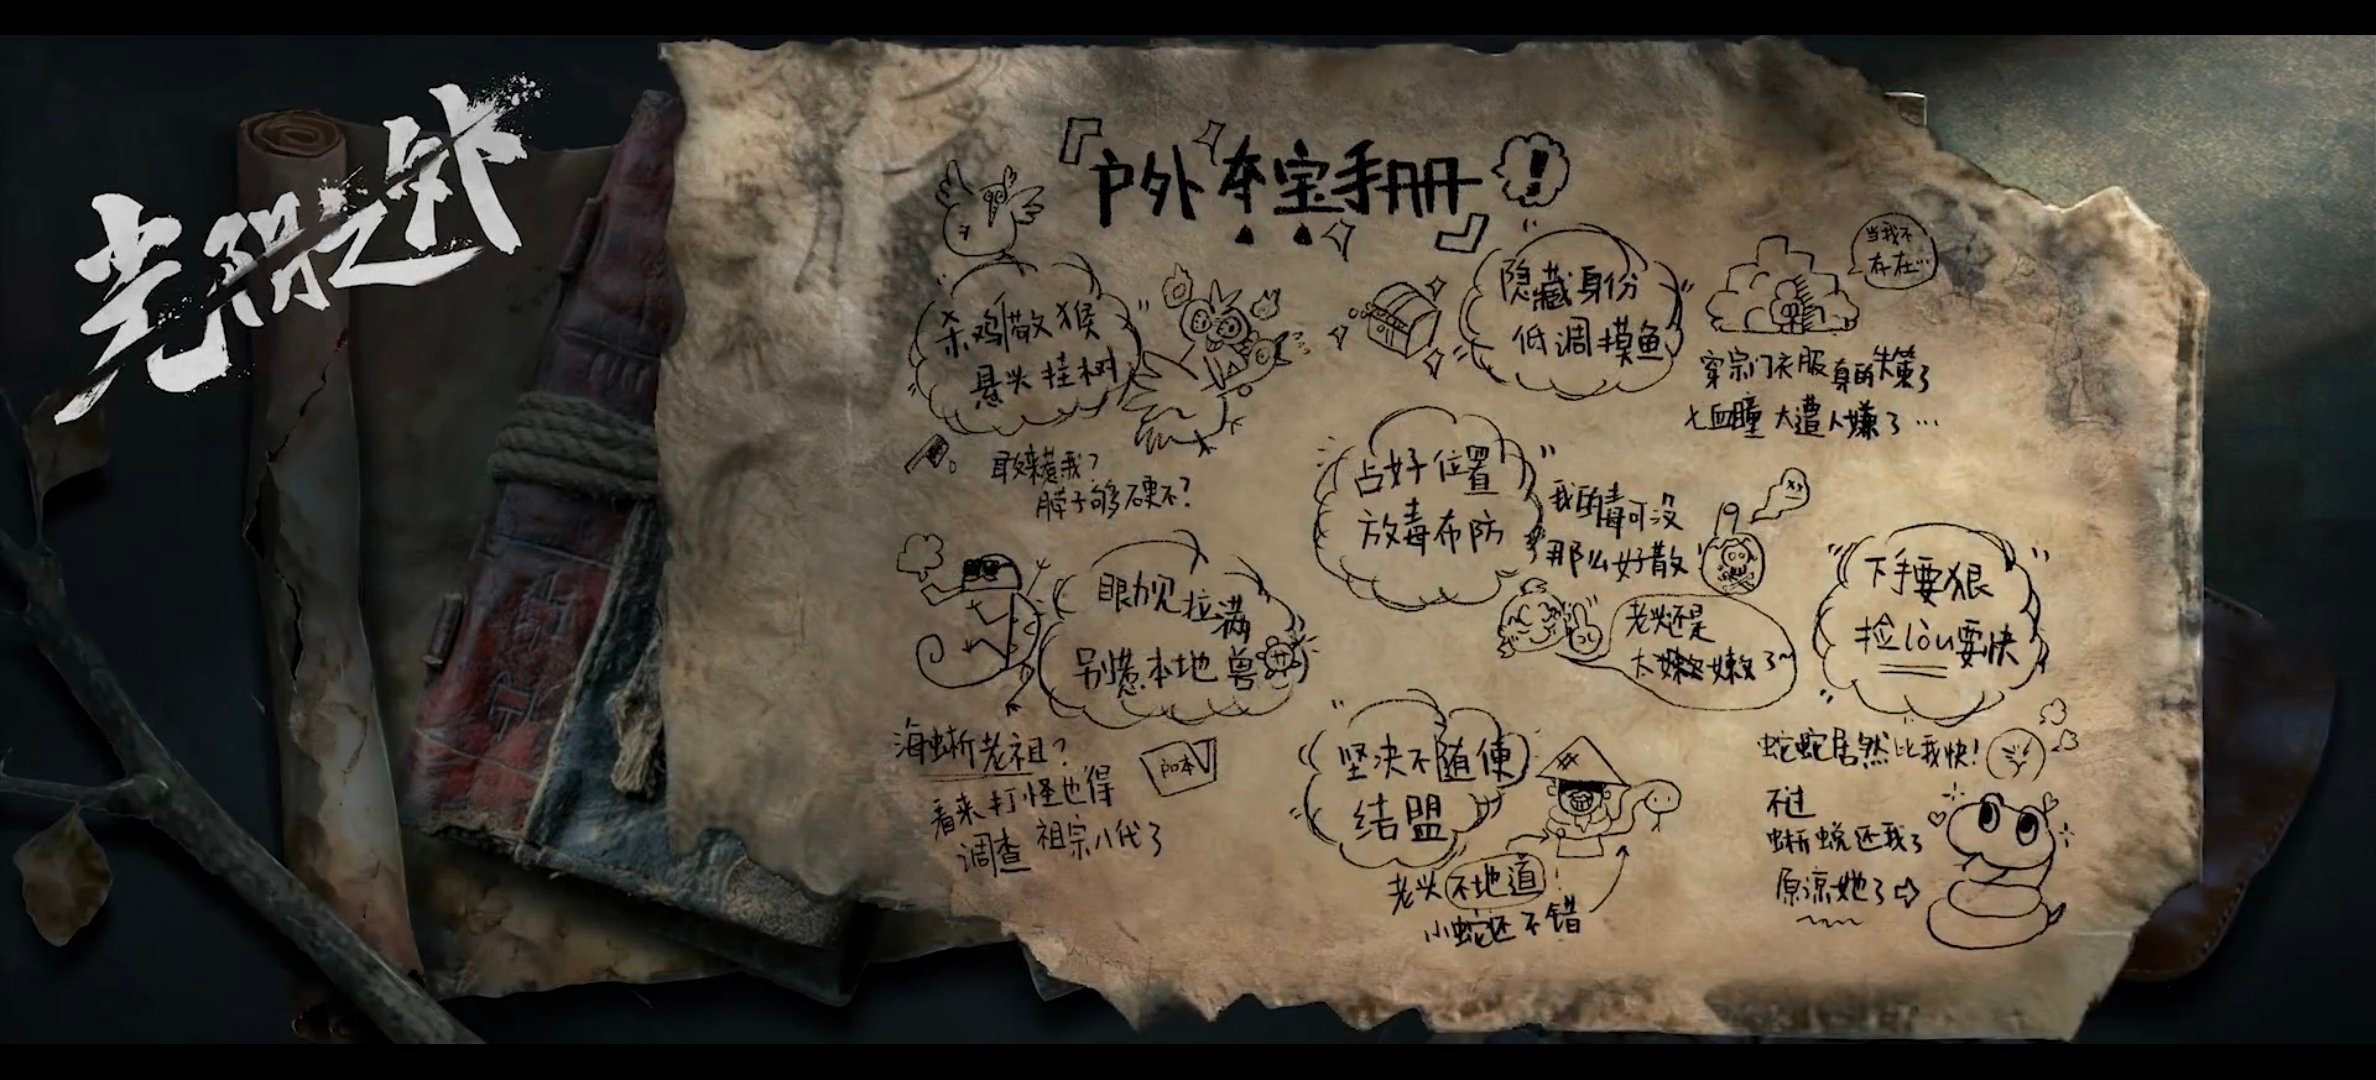 光阴之外
『户外夺宝手册』!
杀鸡儆猴
悬头挂树
敢来惹我?
脖子够硬不?
隐藏身份
低调摸鱼
当我不
存在…
穿宗门衣服真的失策了
七血瞳 大遭人嫌了…
占好位置
放毒布防
我的毒可没
那么好散
老头还是
太嫩嫩了~
眼力见拉满
别惹本地兽
海蜥老祖?
看来打怪也得
调查祖宗八代了
坚决不随便
结盟
老头不地道!
小蛇还不错
下手要狠
捡lòu要快
蛇蛇居然比我快!
不过
蜥蜕还我了
原谅她了